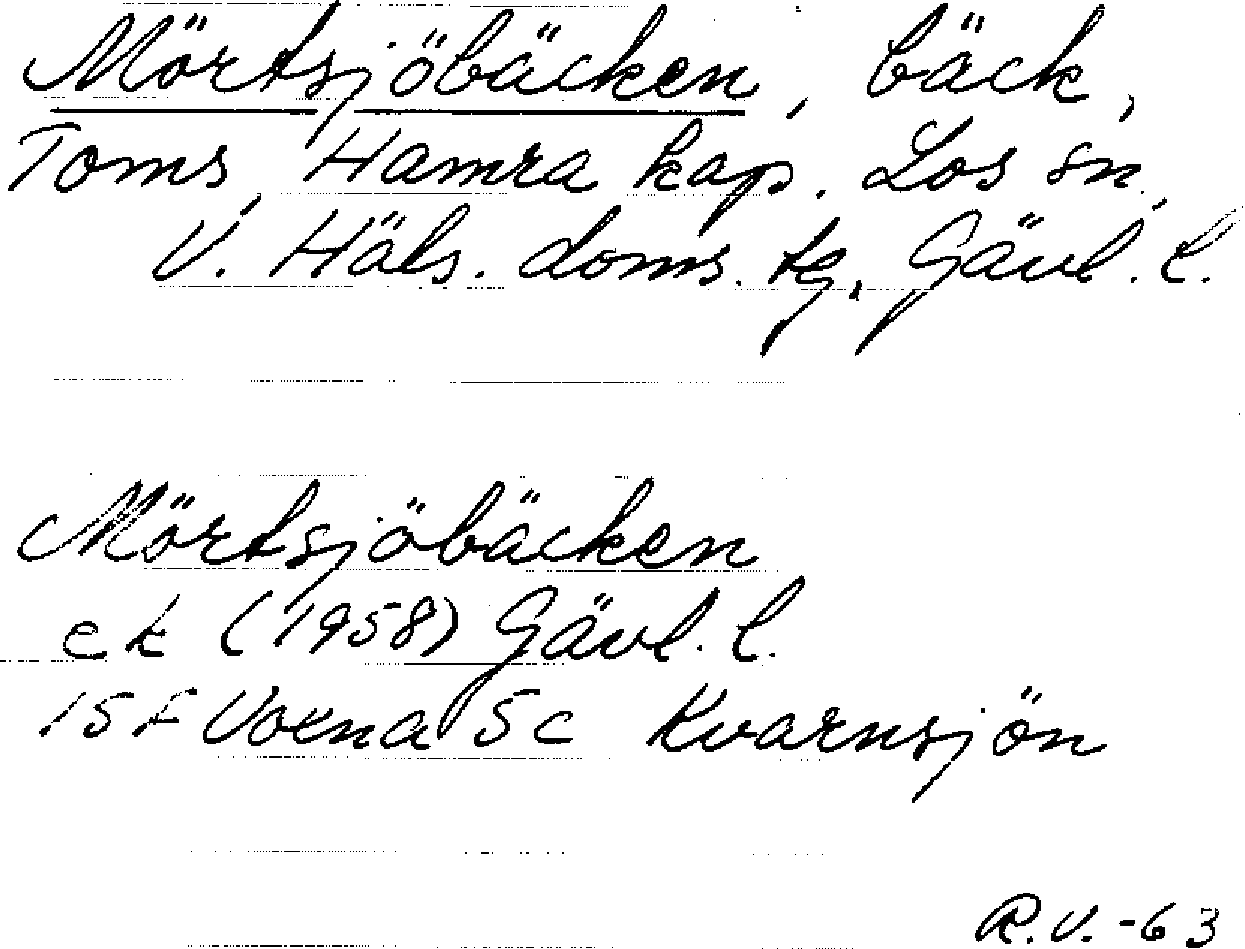 Mörtsjöbäcken, bäck,
Toms, Hamra kap. Los sn,
V. Häls. doms. tg, Gävl. l.
Mörtsjöbäcken
ek (1958) Gävl. l.
15 F Voxna 5c Kvarnsjön
R.V.-63